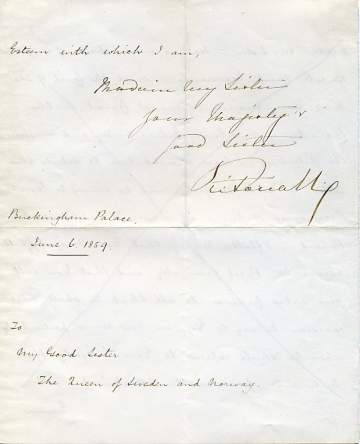 Esteem with which I am,
Madam My Sister
Your Majesty's
good Sister
Victoria R
Buckingham Palace.
June 6. 1859.
To
My Good Sister
The Queen of Sweden and Norway.